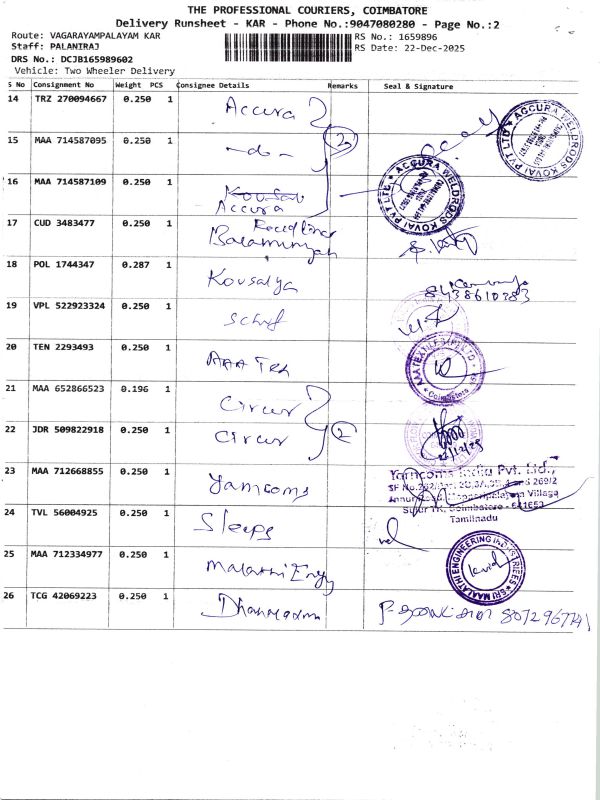 THE PROFESSIONAL COURIERS, COIMBATORE
Delivery Runsheet - KAR - Phone No.:9047080280 - Page No.:2
Route: VAGARAYAMPALAYAM KAR
RS No.: 1659896
Staff: PALANIRAJ
RS Date: 22-Dec-2025
DRS No.: DCJB165989602
Vehicle: Two Wheeler Delivery
S No Consignment No Weight PCS Consignee Details Remarks Seal & Signature
14 TRZ 270094667 0.250 1 Accura
15 MAA 714587095 0.250 1 -do-
16 MAA 714587109 0.250 1 Kousal
Accura
ACCURA WELDRODS KOVAI PVT LTD
ACCURA WELDRODS KOVAI PVT LTD
17 CUD 3483477 0.250 1
18 POL 1744347 0.287 1 Kousalya
8438610283
19 VPL 522923324 0.250 1
20 TEN 2293493 0.250 1 AAA Tex
AAA TEXTILES (P) LTD
Coimbatore
21 MAA 652866523 0.196 1 Circur
22 JDR 509822918 0.250 1 Circur
22/12/25
23 MAA 712668855 0.250 1 Yarncoms
Yarncoms India Pvt. Ltd.,
Village
Sulur TK, Coimbatore - 641653
Tamilnadu
24 TVL 56004925 0.250 1 Sleeps
25 MAA 712334977 0.250 1 Malathi Engg
SRI MAALATHI ENGINEERING INDUSTRIES
26 TCG 42069223 0.250 1